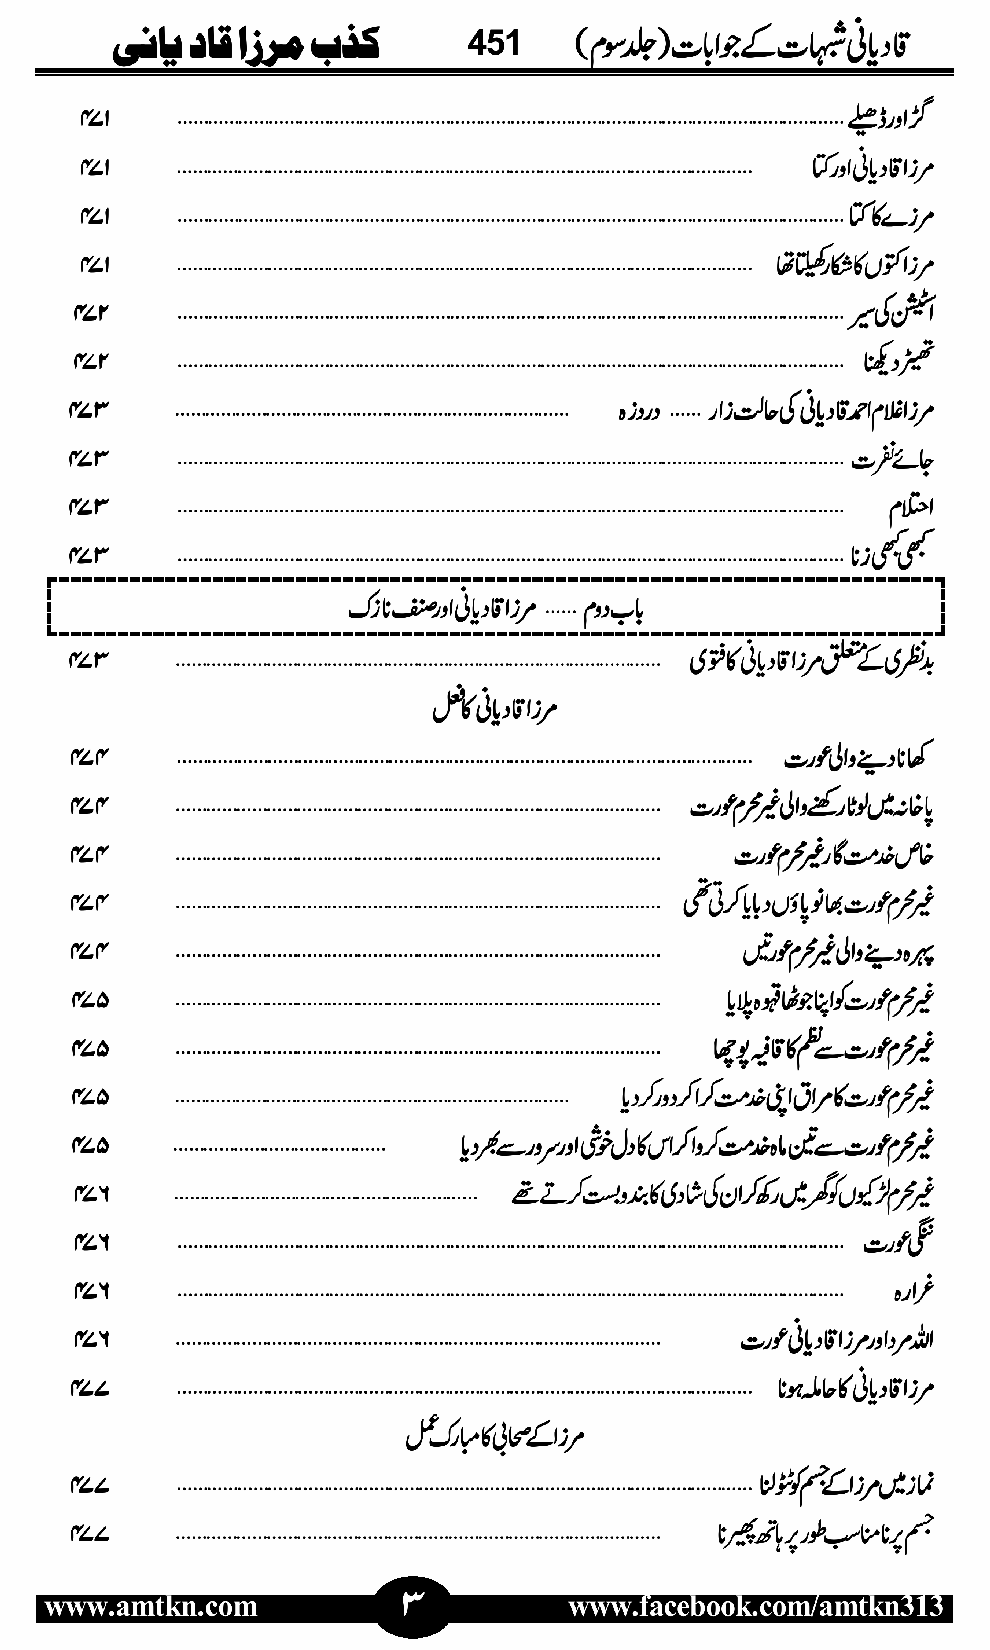 قادیانی شبہات کے جوابات (جلد سوم) 451 کذب مرزا قادیانی
گڑ اور ڈھیلے ........ ۴۷۱
مرزا قادیانی اور کتا ........ ۴۷۱
مرزے کا کتا ........ ۴۷۱
مرزا کتوں کا شکار کھیلتا تھا ........ ۴۷۱
اسٹیشن کی سیر ........ ۴۷۲
تھیٹر دیکھنا ........ ۴۷۲
مرزا غلام احمد قادیانی کی حالت زار ...... دردزہ ........ ۴۷۳
جائے نفرت ........ ۴۷۳
احتلام ........ ۴۷۳
کبھی کبھی زنا ........ ۴۷۳
باب دوم ...... مرزا قادیانی اور صنف نازک
بدنظری کے متعلق مرزا قادیانی کا فتویٰ ........ ۴۷۳
مرزا قادیانی کا فعل
کھانا دینے والی عورت ........ ۴۷۴
پاخانہ میں لوٹا رکھنے والی غیر محرم عورت ........ ۴۷۴
خاص خدمت گار غیر محرم عورت ........ ۴۷۴
غیر محرم عورت بھانو پاؤں دبایا کرتی تھی ........ ۴۷۴
پہرہ دینے والی غیر محرم عورتیں ........ ۴۷۴
غیر محرم عورت کو اپنا جوٹھا قہوہ پلایا ........ ۴۷۵
غیر محرم عورت سے نظم کا قافیہ پوچھا ........ ۴۷۵
غیر محرم عورت کا مراق اپنی خدمت کرا کر دور کر دیا ........ ۴۷۵
غیر محرم عورت سے تین ماہ خدمت کروا کر اس کا دل خوشی اور سرور سے بھر دیا ........ ۴۷۵
غیر محرم لڑکیوں کو گھر میں رکھ کر ان کی شادی کا بندوبست کرتے تھے ........ ۴۷۶
ننگی عورت ........ ۴۷۶
غرارہ ........ ۴۷۶
اللہ مرد اور مرزا قادیانی عورت ........ ۴۷۶
مرزا قادیانی کا حاملہ ہونا ........ ۴۷۷
مرزا کے صحابی کا مبارک عمل
نماز میں مرزا کے جسم کو ٹٹولنا ........ ۴۷۷
جسم پر نامناسب طور پر ہاتھ پھیرنا ........ ۴۷۷
www.amtkn.com ۳ www.facebook.com/amtkn313